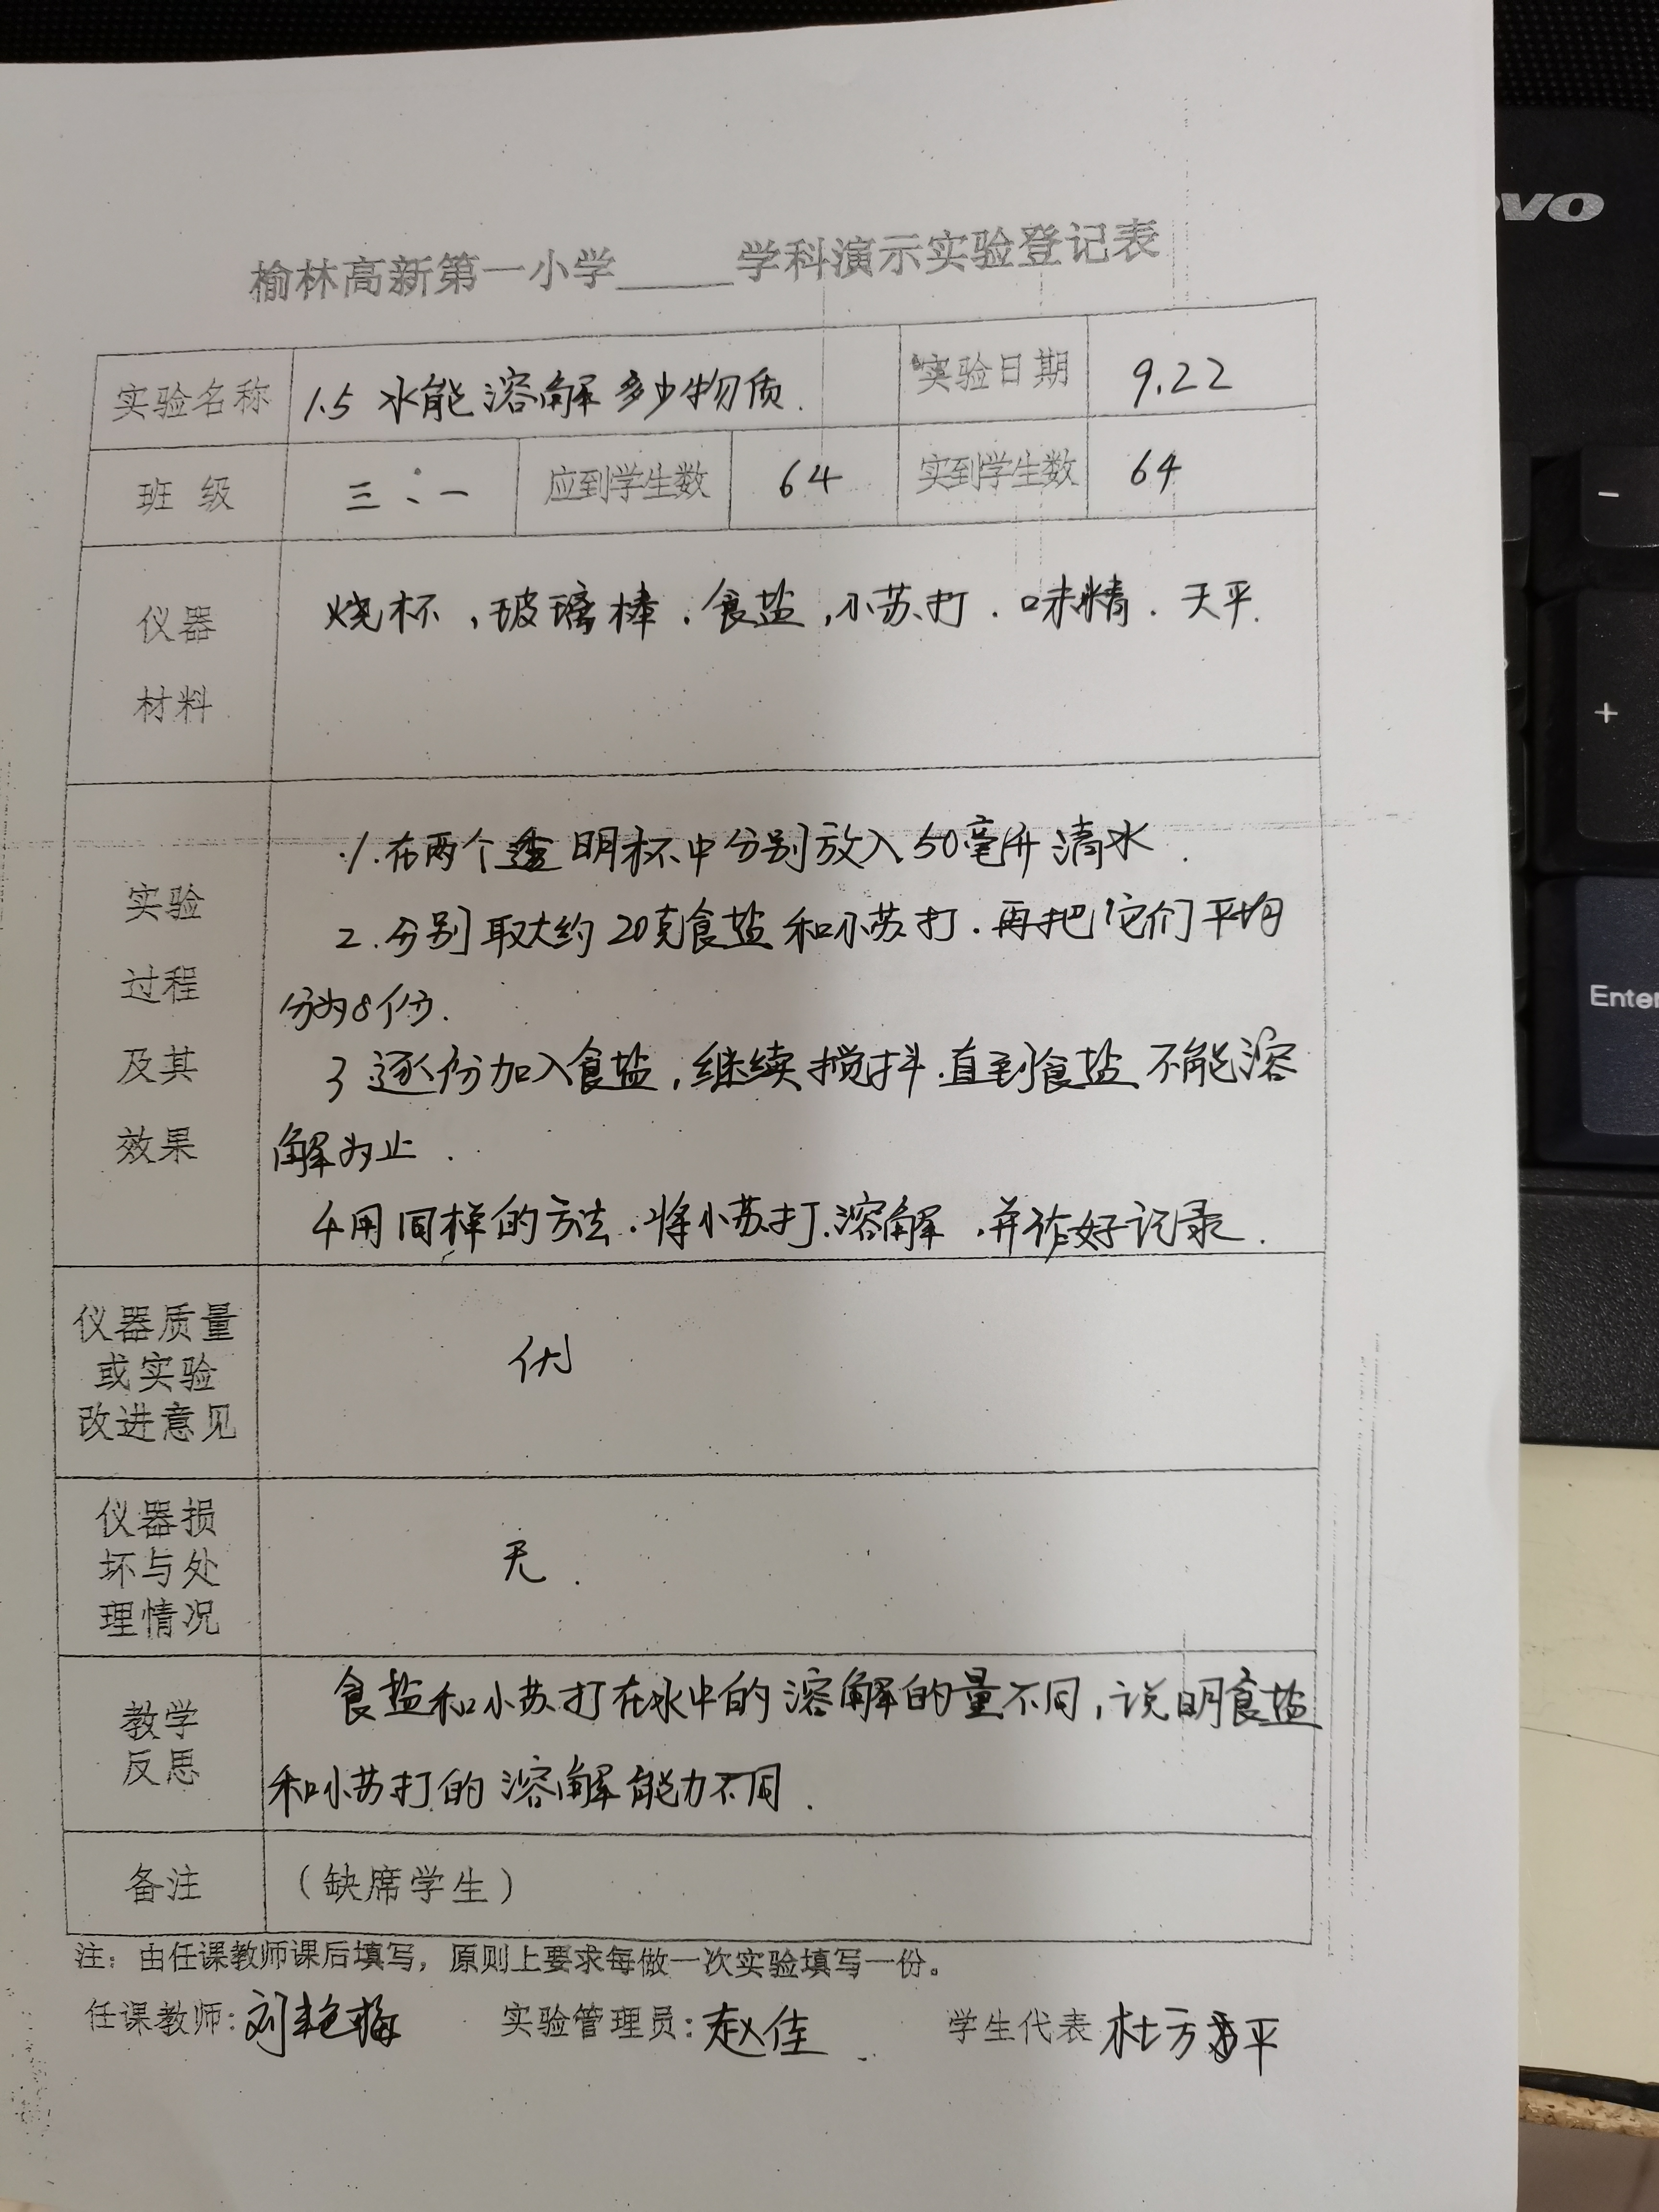 榆林高新第一小学_____学科演示实验登记表
实验名称 1.5 水能溶解多少物质. 实验日期 9.22
班 级 三、一 应到学生数 64 实到学生数 64
仪器
材料
烧杯,玻璃棒.食盐,小苏打.味精.天平.
实验
过程
及其
效果
1.在两个透明杯中分别放入50毫升清水.
2.分别取大约20克食盐和小苏打.再把它们平均
分为8份.
3 逐份加入食盐,继续搅抖.直到食盐不能溶
解为止.
4用同样的方法.将小苏打溶解,并作好记录.
仪器质量
或实验
改进意见
优
仪器损
坏与处
理情况
无.
教学
反思
食盐和小苏打在水中的溶解的量不同,说明食盐
和小苏打的溶解能力不同.
备注 (缺席学生)
注:由任课教师课后填写,原则上要求每做一次实验填写一份。
任课教师:刘艳梅 实验管理员:赵佳 学生代表 杜方平
vo
-
+
Enter